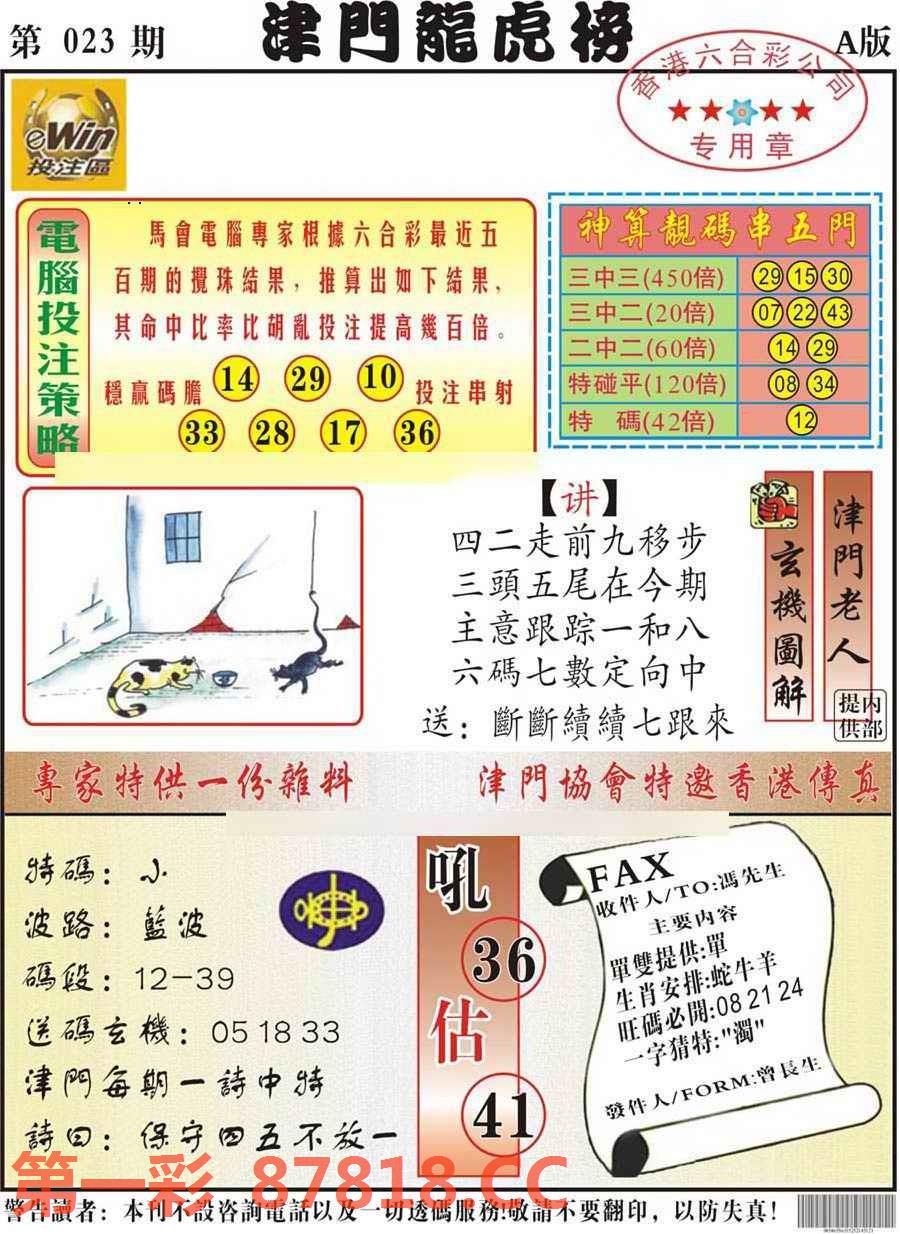 第 023 期
津門龍虎榜
A版
香港六合彩公司
专用章
eWin
投注區
電腦投注策略
馬會電腦專家根據六合彩最近五
百期的攪珠結果，推算出如下結果，
其命中比率比胡亂投注提高幾百倍。
穩贏碼膽 14 29 10 投注串射
33 28 17 36
神算靚碼串五門
三中三(450倍) 29 15 30
三中二(20倍) 07 22 43
二中二(60倍) 14 29
特碰平(120倍) 08 34
特 碼(42倍) 12
【讲】
四二走前九移步
三頭五尾在今期
主意跟踪一和八
六碼七數定向中
送：斷斷續續七跟來
玄機圖解
津門老人
内部提供
專家特供一份雜料
津門協會特邀香港傳真
特碼：小
波路：藍波
碼段：12-39
送碼玄機：05 18 33
津門每期一詩中特
詩曰：保守四五不放一
吼
36
估
41
FAX
收件人/TO:馮先生
主要内容
單雙提供:單
生肖安排:蛇牛羊
旺碼必開:08 21 24
一字猜特:"濁"
發件人/FORM:曾長生
第一彩 87818.CC
警告讀者：本刊不設咨詢電話以及一切透碼服務!敬請不要翻印，以防失真!